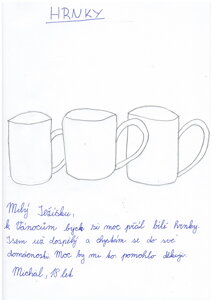 HRNKY
Milý Ježíšku,
k Vánocům bych si moc přál bílí hrnky.
Jsem už dospělý a chystám se do své
domácnosti Moc by mi to pomohlo děkuji.
Michal, 18 let